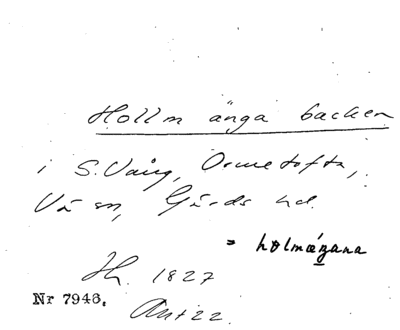 Hollm änga backen
i S. Vång, Ormetofta,
Vå sn, Gärds hd.
= holmæŋana
Hr. 1827
Nr 7946.
Ant 22.